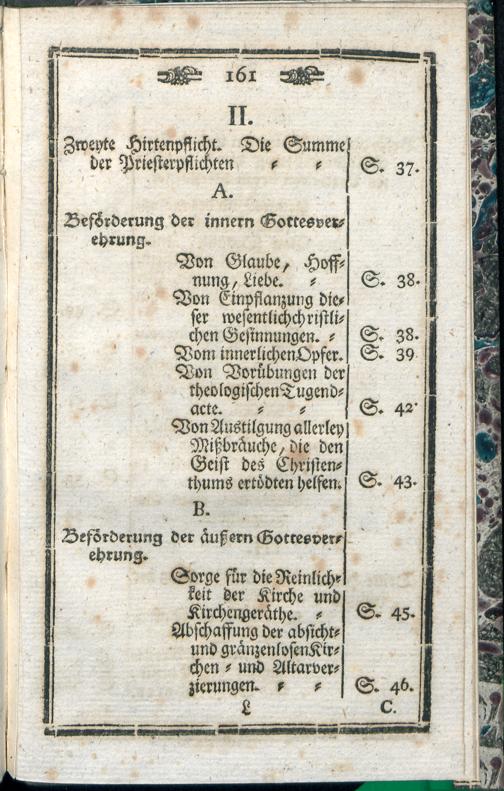 161
II.
Zweyte Hirtenpflicht. Die Summe
der Priesterpflichten = = S. 37.
A.
Beförderung der innern Gottesver=
ehrung.
Von Glaube, Hoff=
nung, Liebe. = S. 38.
Von Einpflanzung die=
ser wesentlichchristli=
chen Gesinnungen. = S. 38.
Vom innerlichen Opfer. S. 39
Von Vorübungen der
theologischen Tugend=
acte. = = S. 42.
Von Austilgung allerley
Mißbräuche, die den
Geist des Christen=
thums ertödten helfen. S. 43.
B.
Beförderung der äußern Gottesver=
ehrung.
Sorge für die Reinlich=
keit der Kirche und
Kirchengeräthe. = S. 45.
Abschaffung der absicht=
und gränzenlosen Kir=
chen = und Altarver=
zierungen. = = S. 46.
L C.